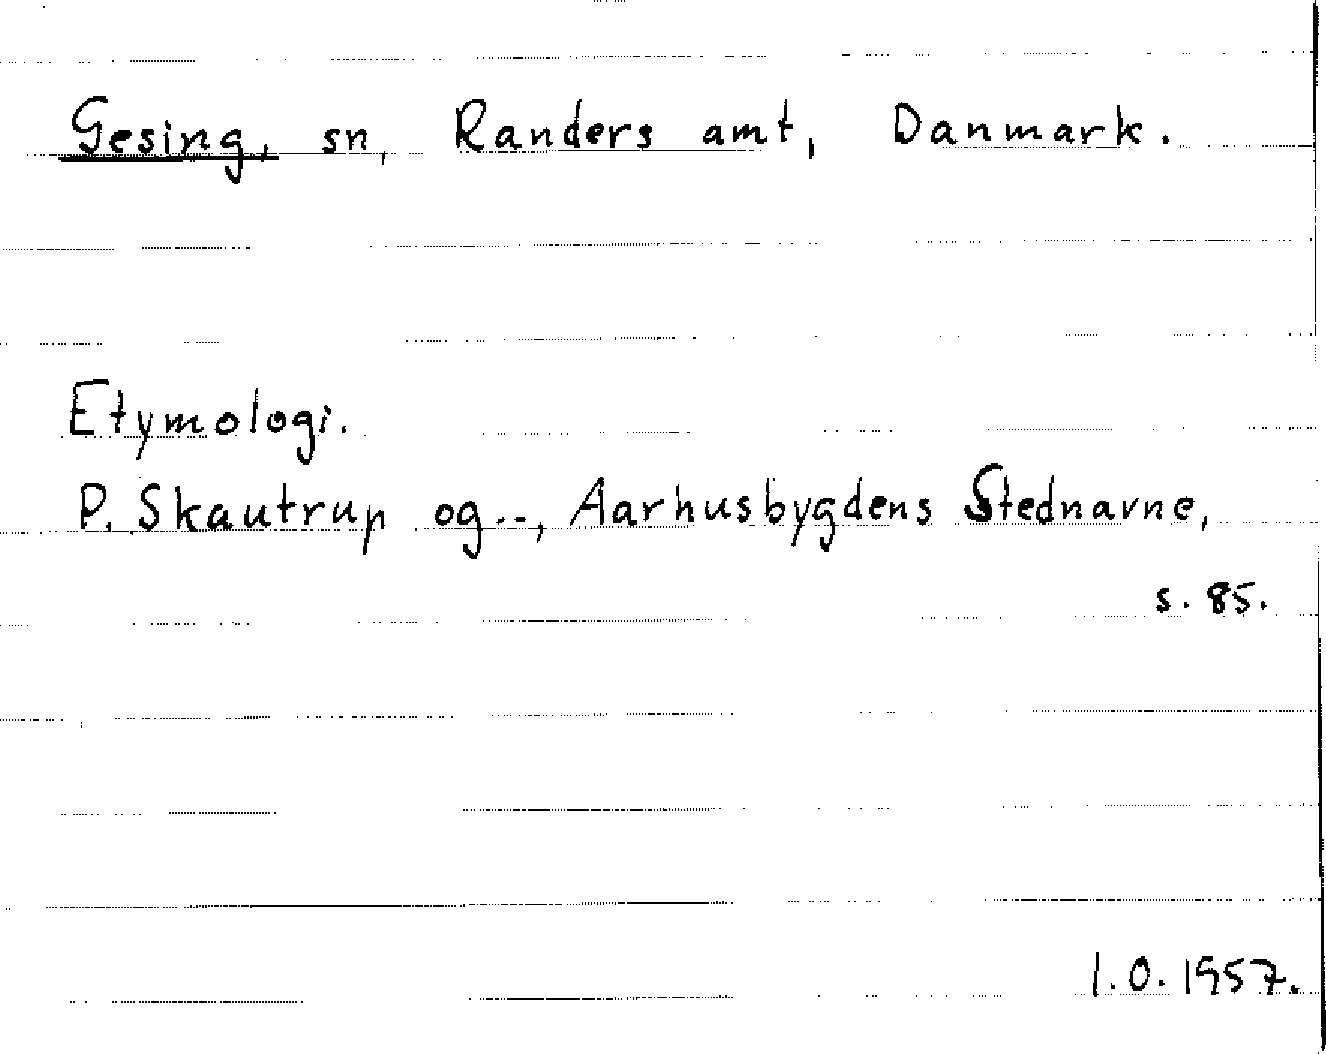 Gesing, sn, Randers amt, Danmark.
Etymologi.
P. Skautrup og.., Aarhusbygdens Stednavne,
s. 85.
I.O. 1957.